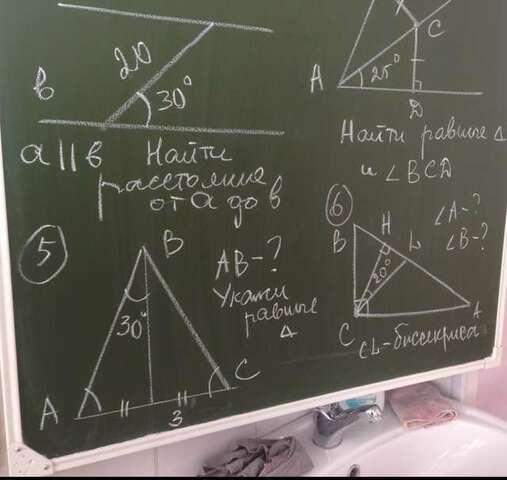 20
в
30°
a || в Найти
расстояние
от a до в
A
25°
C
D
Найти равные Δ
и ∠BCD
5
B
30°
A
C
3
AB-?
Укажи
равные
Δ
6
B
H
L
20°
C
A
∠A-?
∠B-?
CL-биссектриса